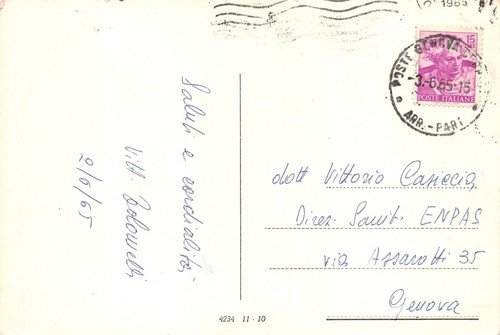 Saluti e cordialità,
Vitt
2/6/65
1965
15
POSTE GENOVA
-3.-6.65-15
ARR.-PAR
POSTE ITALIANE
dott Vittorio Casiccia
Direz. Sanit. ENPAS
via Assarotti 35
Genova
4234 11-10